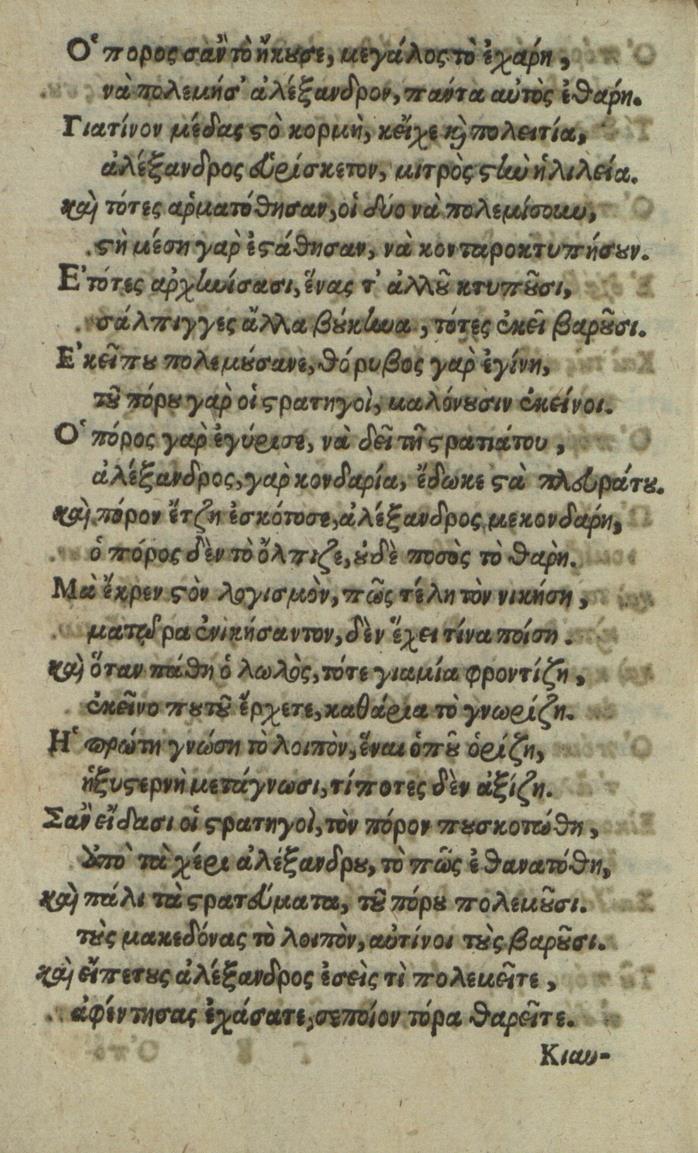 Ὁ πορος σαν τὸ ἤκουσε, μεγάλος τὸ ἐχάρη,
νὰ πολεμήσ' ἀλέξανδρον, πάντα αὐτὸς ἐθάρη.
Γιατίνον μέδας στὸ κορμὴ, κεἶχε καὶ πολειτία,
ἀλέξανδρος εὑρίσκετον, μιτρὸς στὴν ἡλιλεία.
καὶ τότες ἀρματόθησαν, οἱ δύο νὰ πολεμίσουν,
στὴ μέση γαρ ἐστάθησαν, νὰ κονταροκτυπήσουν.
Ἐτότες αρχινίσασι, ἕνας τ' ἀλλοῦ κτυποῦσι,
σάλπιγγες ἄλλα βούκινα, τότες ἐκεῖ βαροῦσι.
Ἐκεῖ που πολεμούσανε, θόρυβος γαρ ἐγίνη,
τοῦ πόρου γαρ οἱ στρατηγοὶ, μαλόνουσιν ἐκείνοι.
Ὁ πόρος γαρ ἐγύρισε, νὰ δεῖ τῆ στρατιάτου,
ἀλέξανδρος, γαρ κονδαρία, ἔδωκε στὰ πλευράτου.
καὶ πόρον ἔτζη ἐσκότοσε, ἀλέξανδρος με κονδάρη,
ὁ πόρος δὲν τὸ ὄλπιζε, οὐδὲ ποσὸς τὸ θαρὴ.
Μὰ ἔκρεν στὸν λογισμὸν, πῶς τέλη τὸν νικήση,
ματώρα ἐνικήσαντον, δὲν ἔχει τίνα ποίση.
καὶ ὅταν πάθη ὁ λωλὸς, τότε γιαμία φροντίζη,
ἐκεῖνο που τοῦ ἔρχετε, καθάρια τὸ γνωρίζη.
Ἡ πρώτη γνώση τὸ λοιπὸν, ἔναι ὁποῦ ὁρίζη,
ἡ ξυστερνὴ μετάγνωσι, τίποτες δὲν ἀξίζη.
Σαν εἴδασι οἱ στρατηγοὶ, τὸν πόρον πουσκοτώθη,
Ὑπὸ τὰ χέρι ἀλέξανδρου, τὸ πῶς ἐθανατόθη,
καὶ πάλι τὰ στρατεύματα, τοῦ πόρου πολεμοῦσι.
τοὺς μακεδόνας τὸ λοιπὸν, αὐτίνοι τοὺς βαροῦσι.
καὶ εἴπετους ἀλέξανδρος ἐσεὶς τὶ πολεμεῖτε,
ἀφέντησας ἐχάσατε, σε ποίον τόρα θαρεῖτε.
Κιαυ-